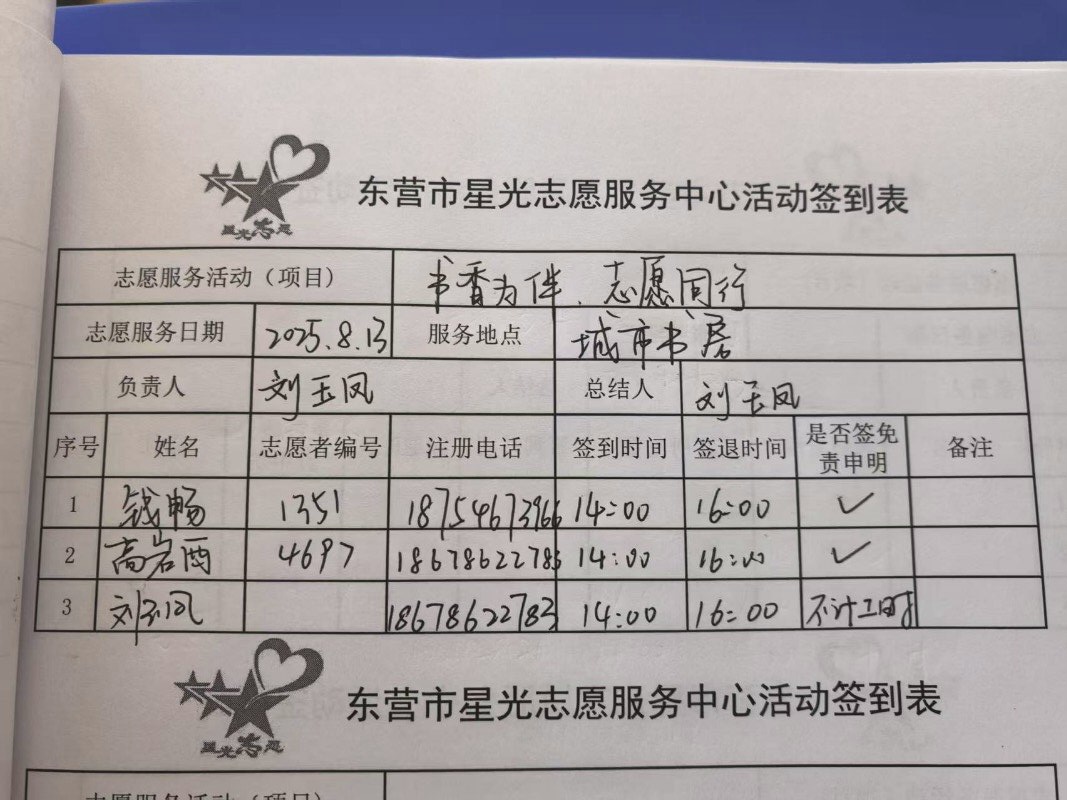 星光志愿
东营市星光志愿服务中心活动签到表
志愿服务活动（项目） 书香为伴、志愿同行
志愿服务日期 2025.8.13 服务地点 城市书房
负责人 刘玉凤 总结人 刘玉凤
序号 姓名 志愿者编号 注册电话 签到时间 签退时间 是否签免责申明 备注
1 钱畅 1351 18754673966 14:00 16:00 ✓
2 高岩西 4697 18678622783 14:00 16:00 ✓
3 刘玉凤 18678622783 14:00 16:00 不计工时
星光志愿
东营市星光志愿服务中心活动签到表
志愿服务活动（项目）